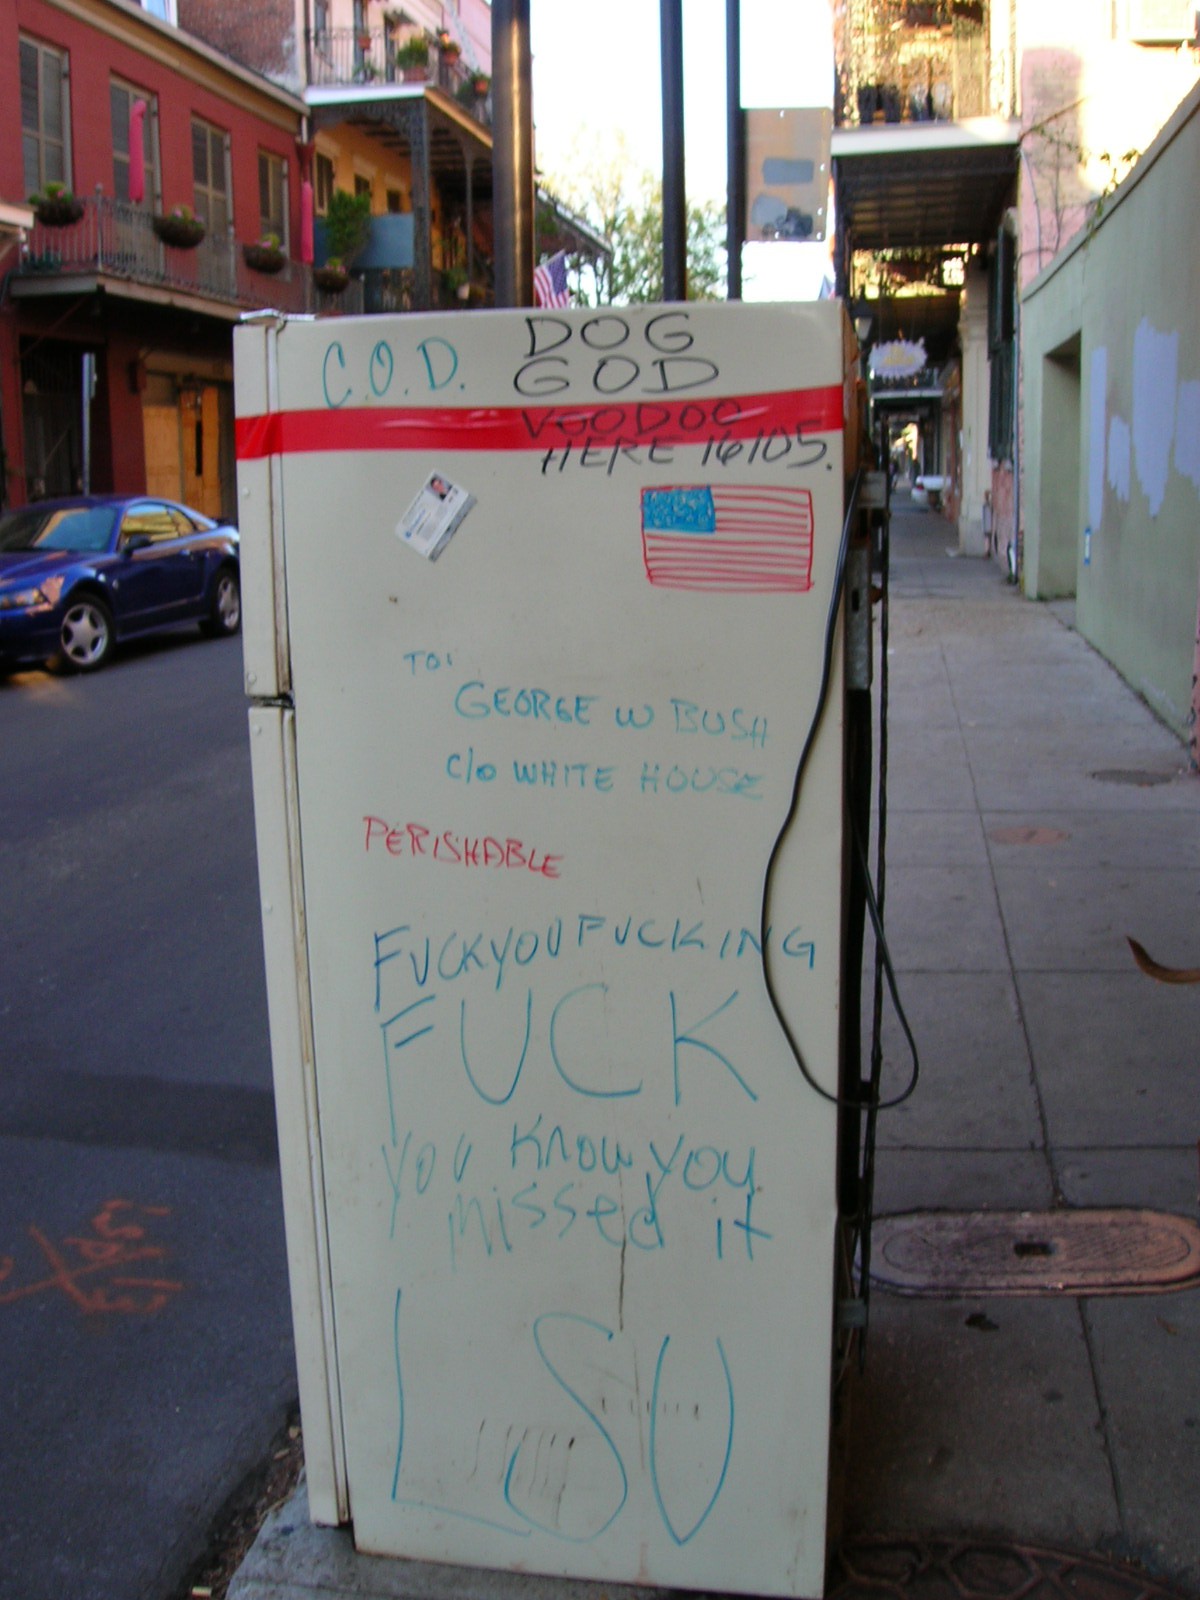 C.O.D.
DOG
GOD
VOODOO
HERE 16105.
TO:
GEORGE W BUSH
c/o WHITE HOUSE
PERISHABLE
FUCK YOU FUCKING
FUCK
YOU KNOW YOU
missed it
LSU